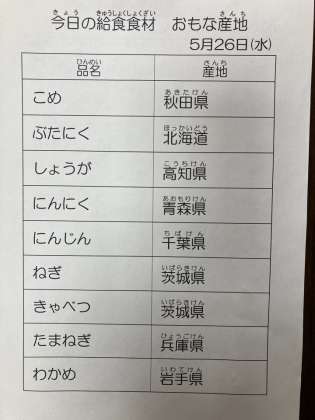 今日の給食食材 おもな産地
5月26日(水)
品名 産地
こめ 秋田県
ぶたにく 北海道
しょうが 高知県
にんにく 青森県
にんじん 千葉県
ねぎ 茨城県
きゃべつ 茨城県
たまねぎ 兵庫県
わかめ 岩手県